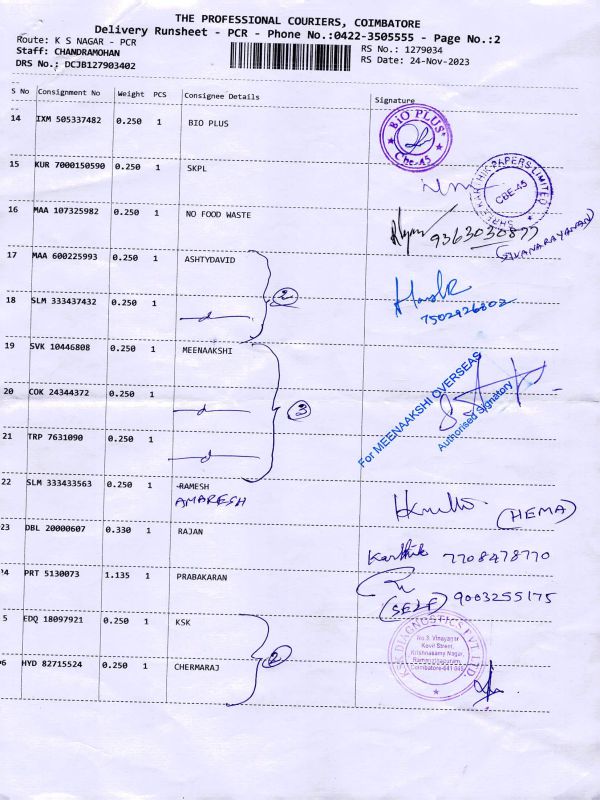 THE PROFESSIONAL COURIERS, COIMBATORE
Delivery Runsheet - PCR - Phone No.:0422-3505555 - Page No.:2
Route: K S NAGAR - PCR
RS No.: 1279034
Staff: CHANDRAMOHAN
RS Date: 24-Nov-2023
DRS No.: DCJB127903402
S No Consignment No Weight PCS Consignee Details Signature
14 IXM 505337482 0.250 1 BIO PLUS
BIO PLUS
Cbe-45
15 KUR 7000150590 0.250 1 SKPL
KARTHIK PAPERS LIMITED
CBE-45
16 MAA 107325982 0.250 1 NO FOOD WASTE
9363030877
(SIVANARAYANAN)
17 MAA 600225993 0.250 1 ASHTYDAVID
2
18 SLM 333437432 0.250 1
7502926802
19 SVK 10446808 0.250 1 MEENAAKSHI
For MEENAAKSHI OVERSEAS
Authorised Signatory
20 COK 24344372 0.250 1
3
21 TRP 7631090 0.250 1
22 SLM 333433563 0.250 1 RAMESH
AMARESH
(HEMA)
23 DBL 20000607 0.330 1 RAJAN
Karthik 7708478770
24 PRT 5130073 1.135 1 PRABAKARAN
(SELF) 9003255175
5 EDQ 18097921 0.250 1 KSK
KSK DIAGNOSTICS PVT. LTD.
No.3, Vinayagar
Kovil Street,
Krishnasamy Nagar,
Ramanathapuram,
Coimbatore-641 045
2
6 HYD 82715524 0.250 1 CHERMARAJ